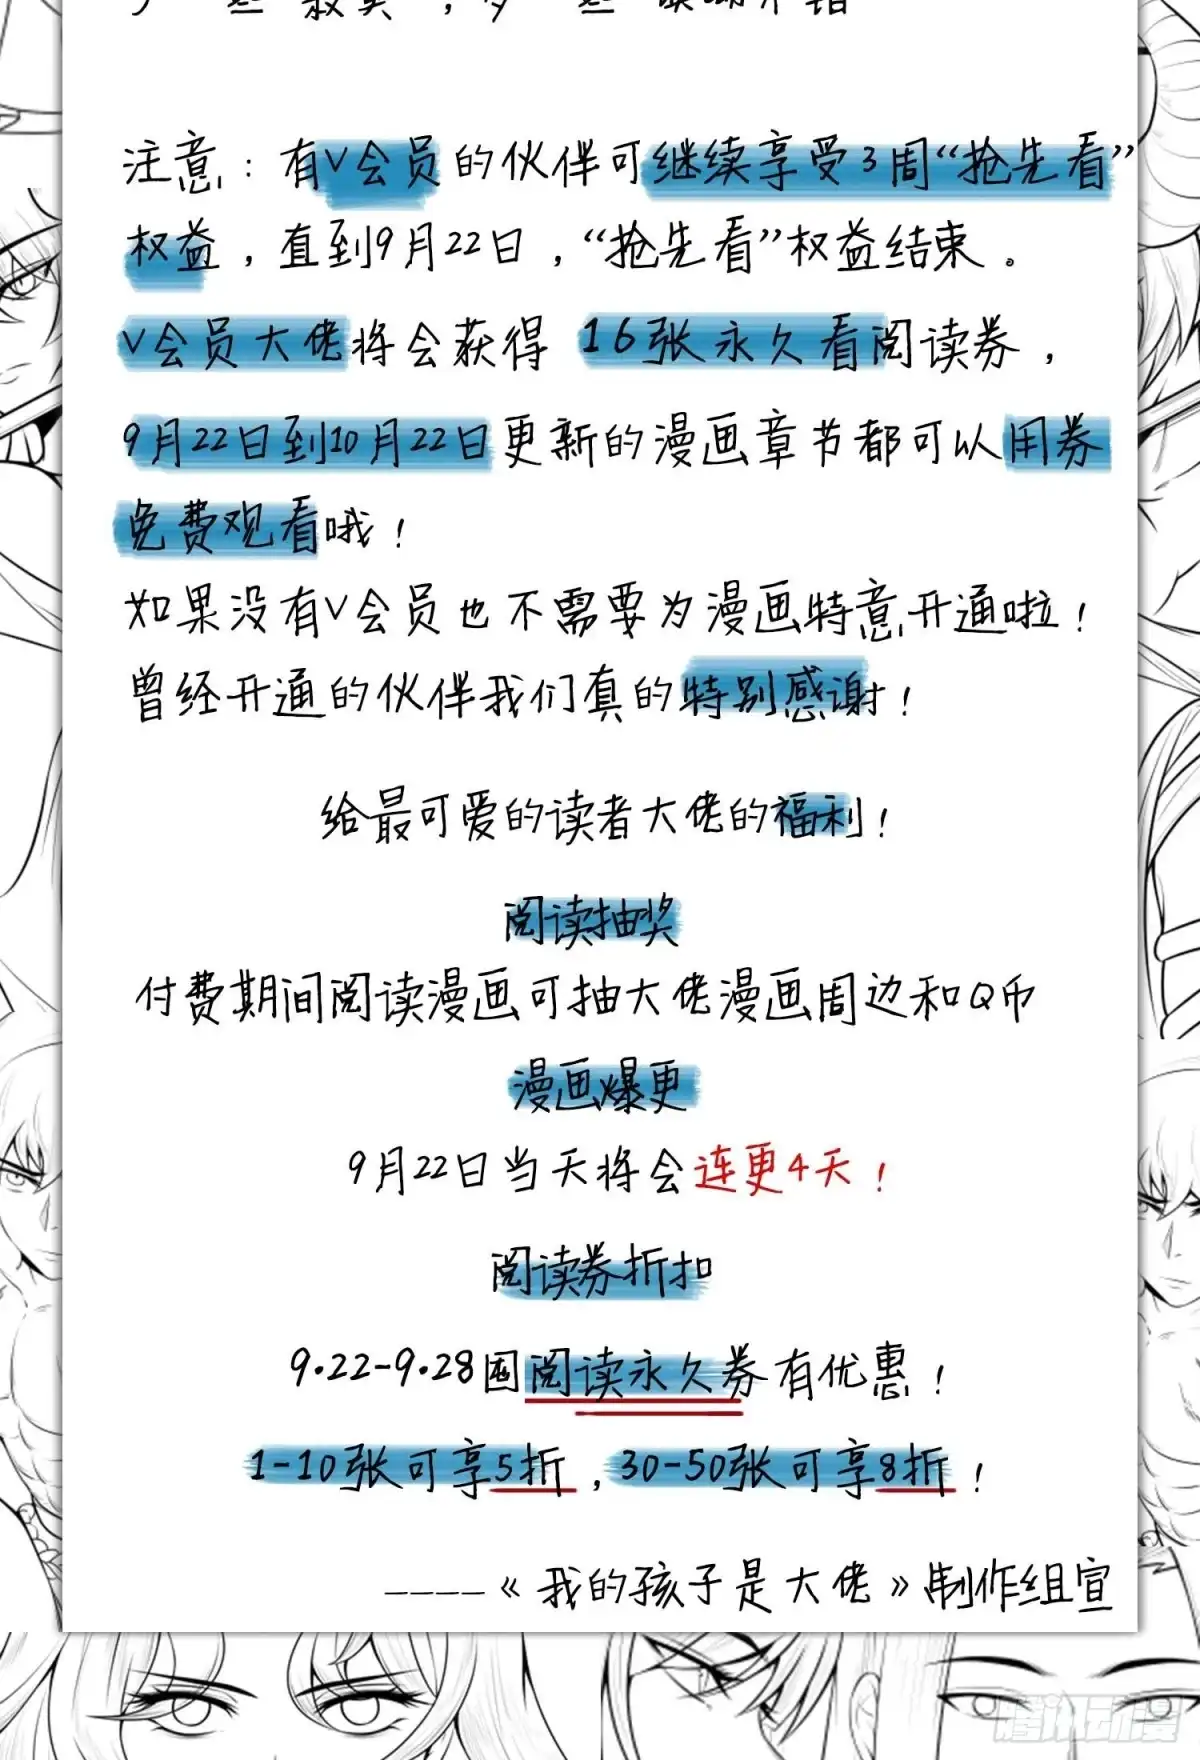 注意：有V会员的伙伴可继续享受3周“抢先看”
权益，直到9月22日，“抢先看”权益结束。
V会员大佬将会获得 16张永久看阅读券，
9月22日到10月22日更新的漫画章节都可以用券
免费观看哦！
如果没有V会员也不需要为漫画特意开通啦！
曾经开通的伙伴我们真的特别感谢！
给最可爱的读者大佬的福利！
阅读抽奖
付费期间阅读漫画可抽大佬漫画周边和Q币
漫画爆更
9月22日当天将会连更4天！
阅读券折扣
9.22-9.28囤阅读永久券有优惠！
1-10张可享5折，30-50张可享8折！
----《我的孩子是大佬》制作组宣
腾讯动漫